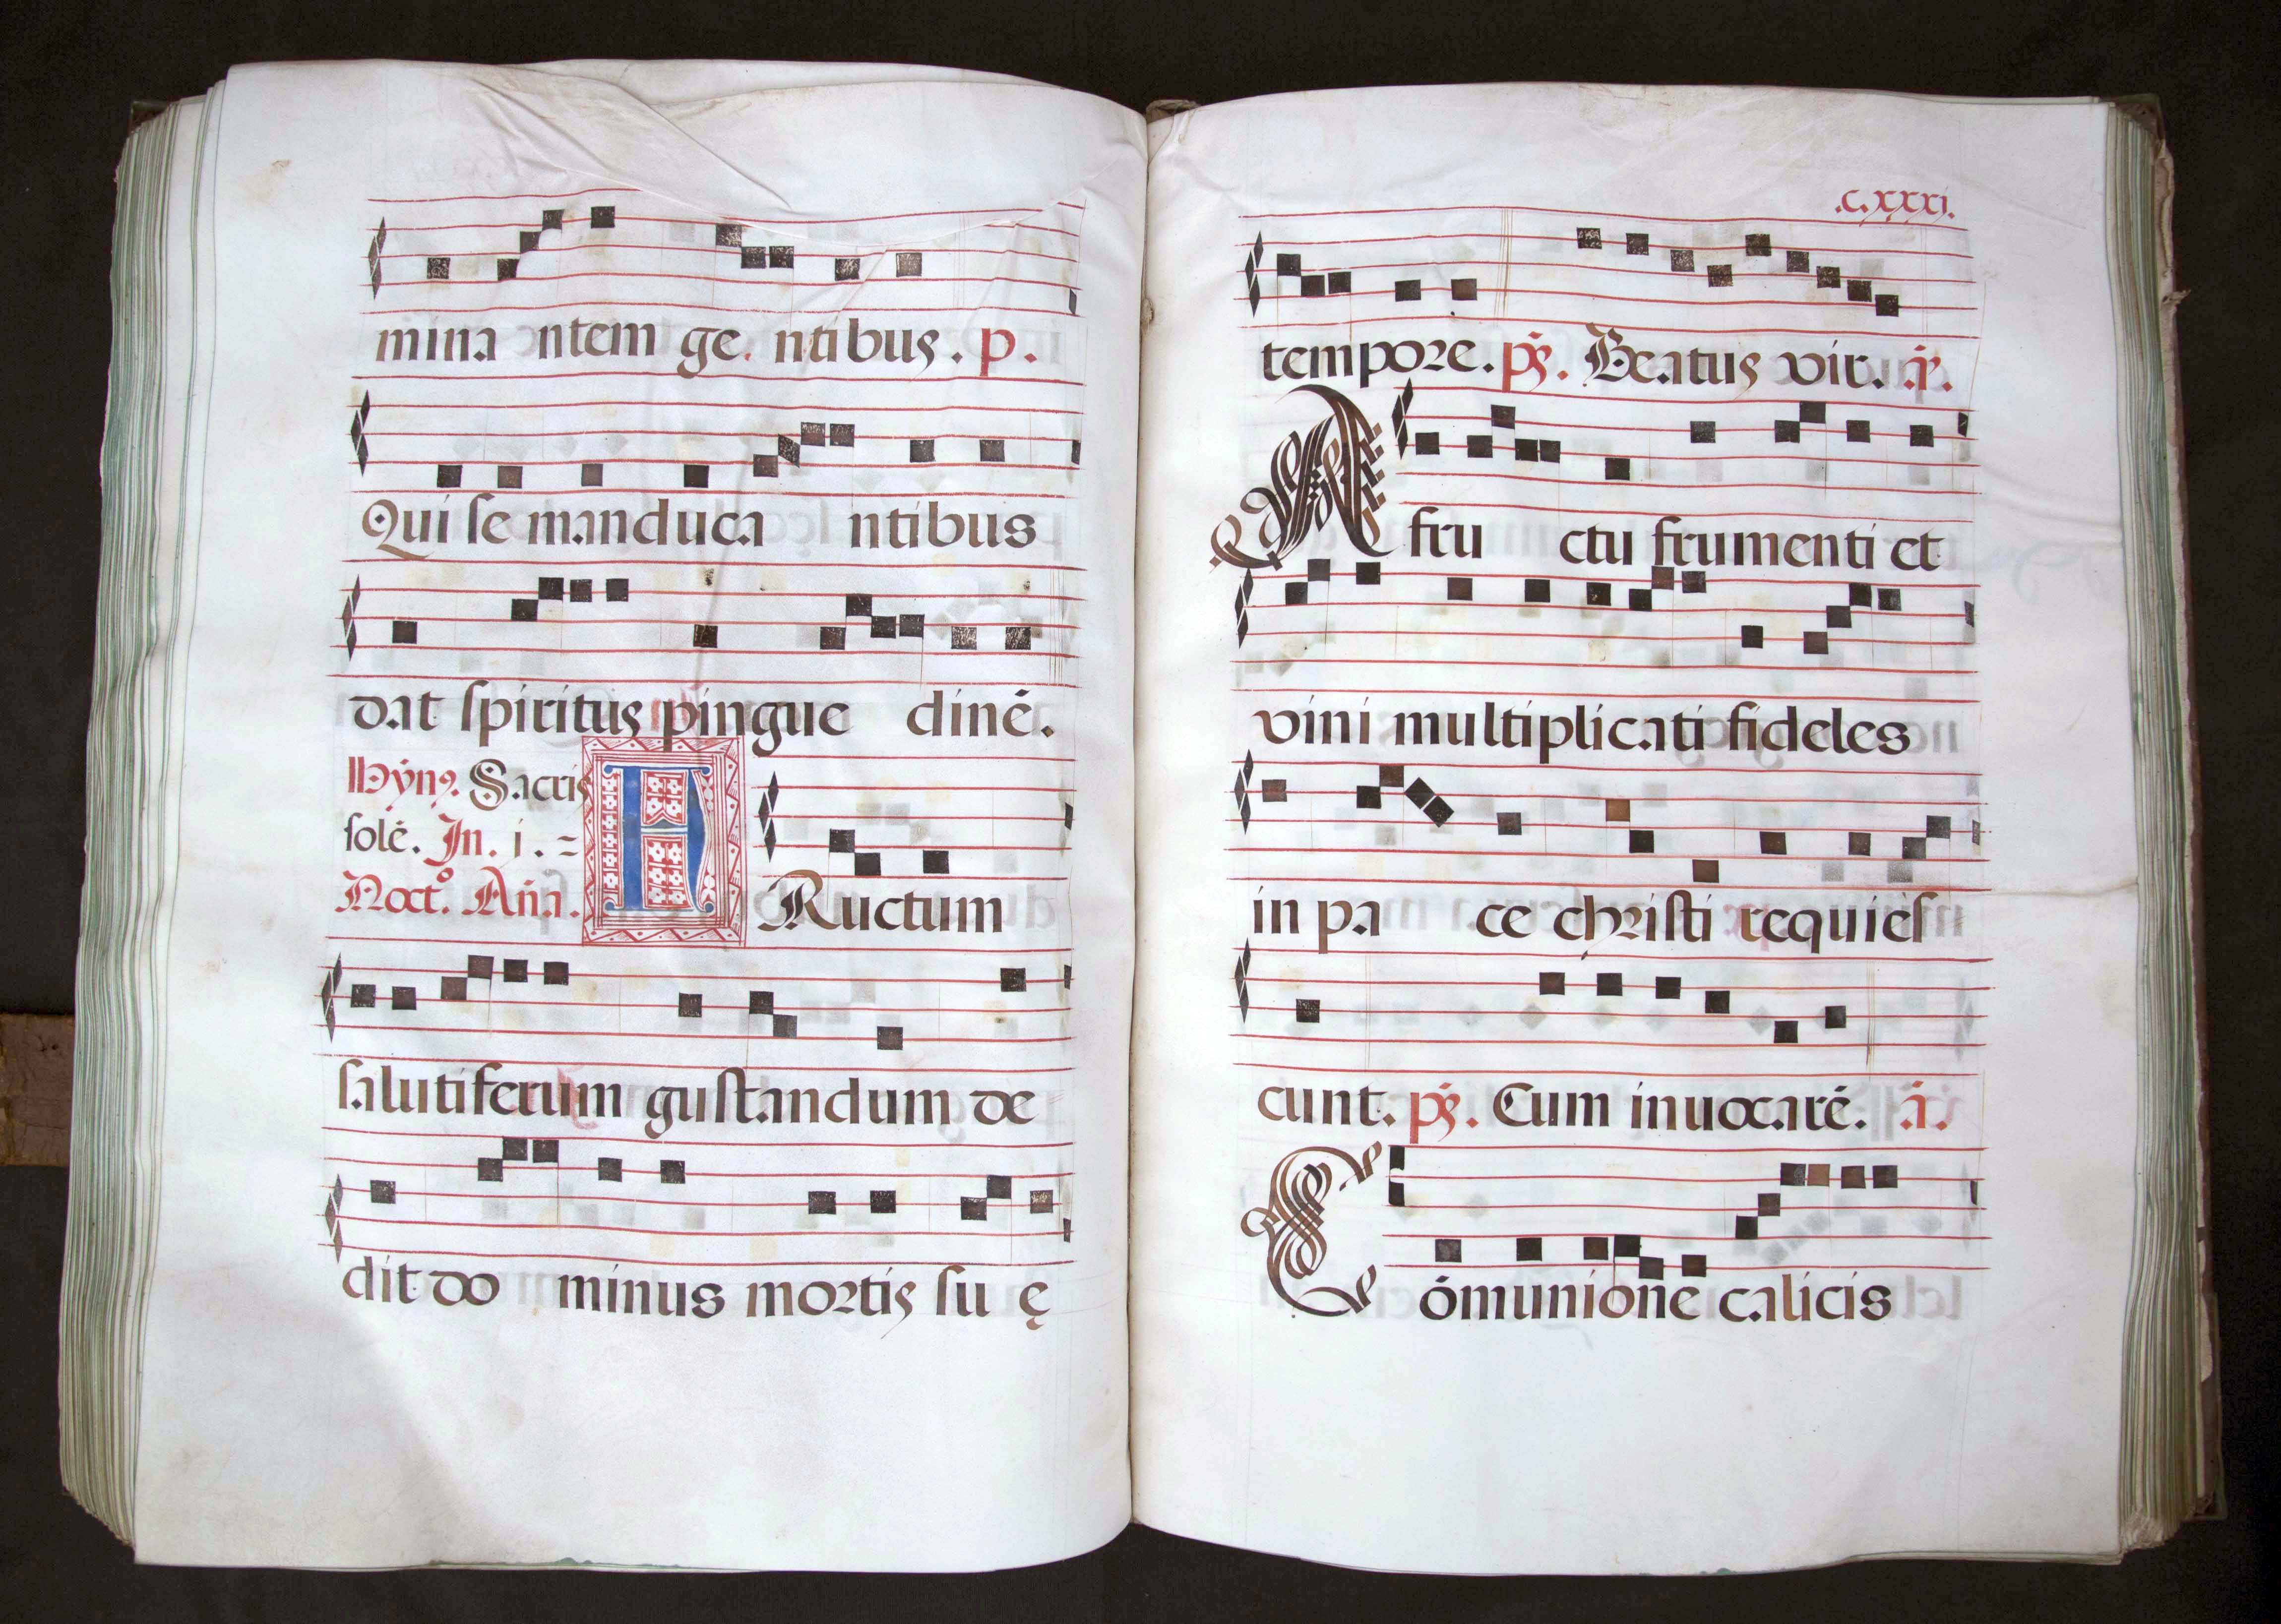 mina ntem ge. ntibus. p.
Qui se manduca ntibus
dat spiritus pingue dinē.
Hỹnꝰ. Sacris
solē. In. i. =
Noctº. Añа. H Ructum
salutiferum gustandum de
dit do minus mortis su ę
.C.xxxi.
tempore. pſ̄. Beatus vir. ā.
A fru ctu frumenti et
vini multiplicati fideles
in pa ce christi requies
cunt. pſ̄. Cum inuocarē. ā.
C ōmunione calicis